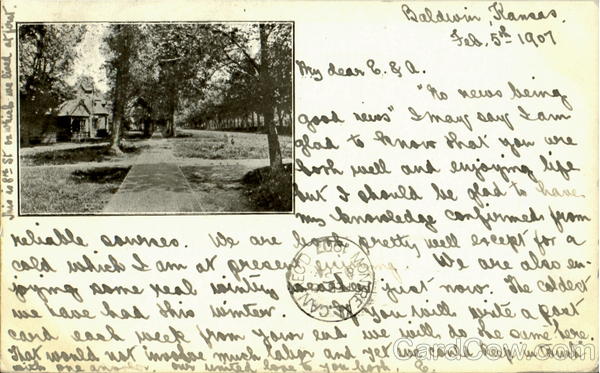 Baldwin, Kansas.
Feb. 5th 1907
My dear E. & A.
"No news being
good news" I may say I am
glad to know that you are
both well and enjoying life
but I should be glad to have
my knowledge confirmed from
reliable sources. We are both pretty well except for a
cold which I am at present We are also en-
joying some real wintry weather just now. The coldest
we have had this winter. If you will write a post
card each week from your end we will do the same here.
That would not involve much labor and yet we could keep in touch
with one another. Our united love to you both. E.
This is 8th St on which we lived at first
MONTREAL
CAN
CardCow.com